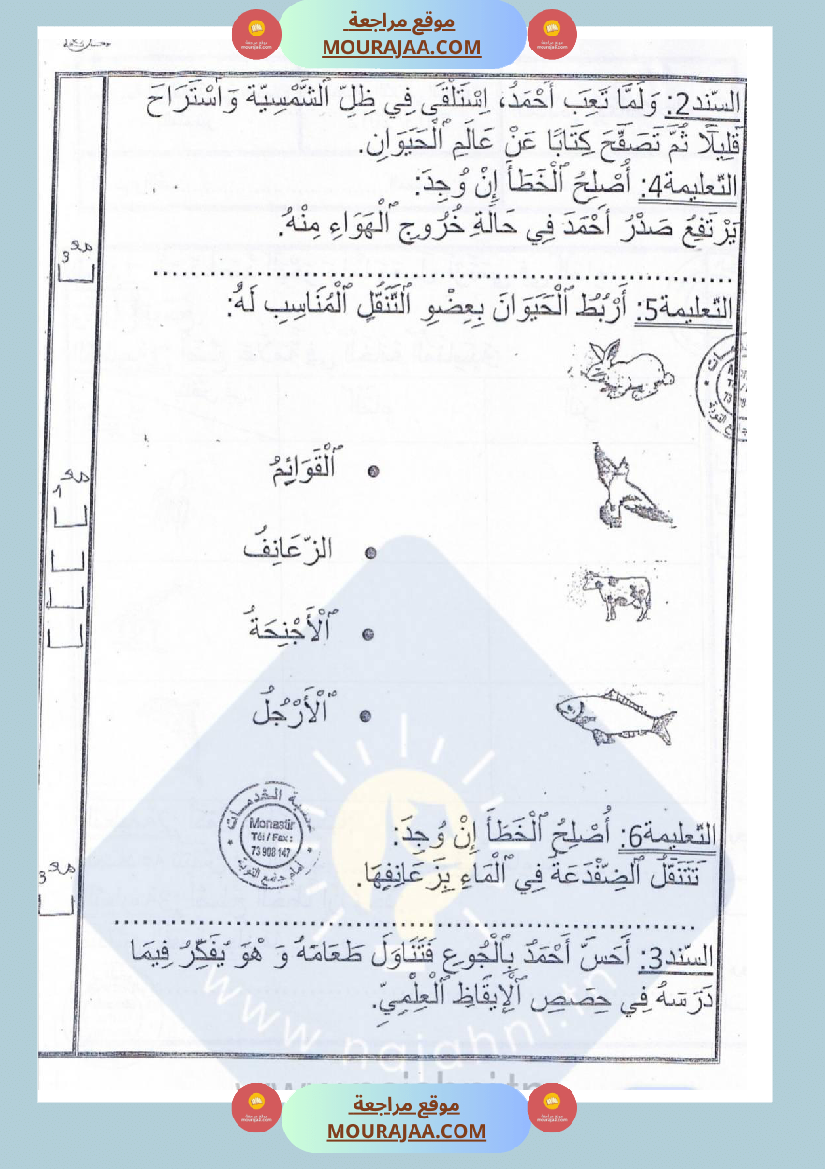 موقع مراجعة
MOURAJAA.COM
السّند2: وَلَمَّا تَعِبَ أَحْمَدُ، اِسْتَلْقَى فِي ظِلِّ ٱلشَّمْسِيَّة وَٱسْتَرَاحَ
قَلِيلًا ثُمَّ تَصَفَّحَ كِتَابًا عَنْ عَالَمِ ٱلْحَيَوَانِ.
التّعليمة4: أُصْلِحُ ٱلْخَطَأَ إِنْ وُجِدَ:
يَرْتَفِعُ صَدْرُ أَحْمَدَ فِي حَالَةِ خُرُوجِ ٱلْهَوَاءِ مِنْهُ.
مع3
التّعليمة5: أَرْبُطُ ٱلْحَيَوَانَ بِعِضْوِ ٱلتَّنَقُّلِ ٱلْمُنَاسِبِ لَهُ:
ٱلْقَوَائِمُ
مع1
الزّعَانِفُ
ٱلْأَجْنِحَةُ
ٱلْأَرْجُلُ
Monastir
Tél / Fax :
73 908 147
أمام جامع التوبة
التّعليمة6: أُصْلِحُ ٱلْخَطَأَ إِنْ وُجِدَ:
تَتَنَقَّلُ ٱلضِّفْدَعَةُ فِي ٱلْمَاءِ بِزَعَانِفِهَا.
مع3
السّند3: أَحَسَّ أَحْمَدُ بِٱلْجُوعِ فَتَنَاوَلَ طَعَامَهُ وَ هْوَ يُفَكِّرُ فِيمَا
دَرَسَهُ فِي حِصَصِ ٱلْإِيقَاظِ ٱلْعِلْمِيِّ.
www.najahni.tn
موقع مراجعة
MOURAJAA.COM